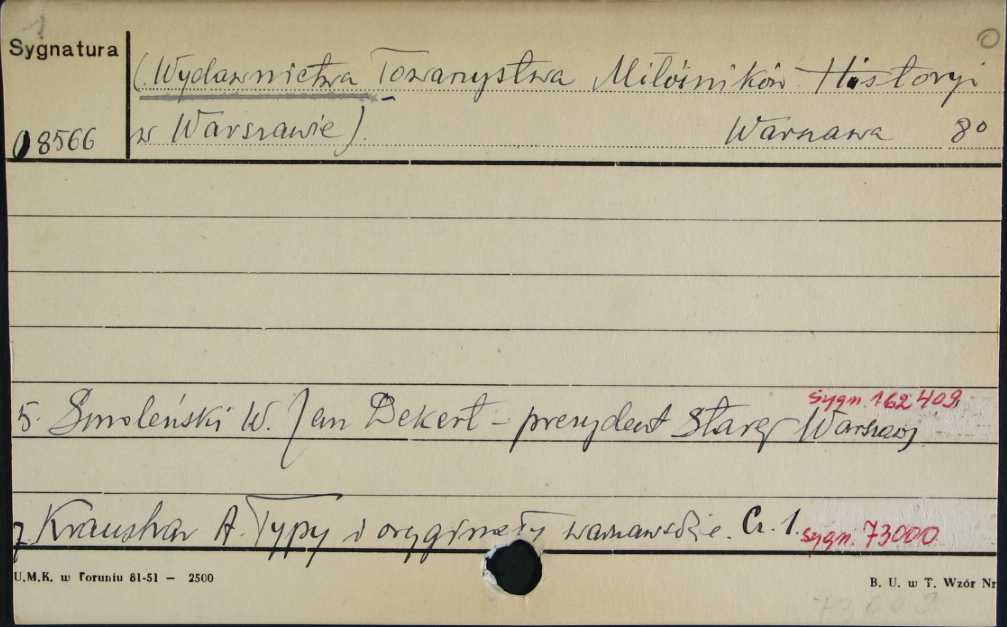 1
0
Sygnatura
(Wydawnictwa Towarzystwa Miłośników Historyi
08566
w Warszawie).
Warszawa 8°
Sygn. 162409
5. Smoleński W. Jan Dekert – prezydent Starej Warszawy
7. Kraushar A. Typy i oryginały warszawskie. Cz. 1. Sygn. 73000
U.M.K. w Toruniu 81-51 — 2500
B. U. w T. Wzór Nr